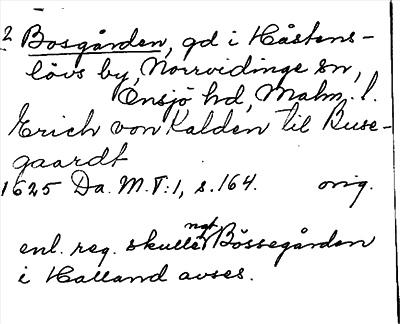 2 Bosgården, gd i Håstens-
lövs by, Norrvidinge sn,
Onsjö hd, Malm. l.
Erich von Kalden til Buse-
gaardt
1625 Da. M.T:1, s.164. orig.
enl. reg. skulle ngt Bössegården
i Halland avses.